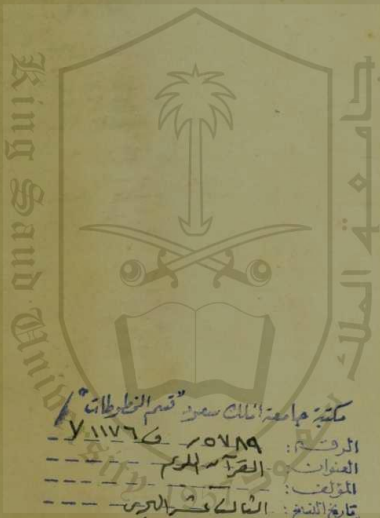 King Saud University
جامعة الملك سعود
1957
مكتبة جامعة الملك سعود "قسم المخطوطات"
الرقم: ٥٧٨٩ / ف ١١٧٦ / ٧
العنوان: القرآن الكريم
المؤلف:
تاريخ النسخ: الثالث عشر الهجري